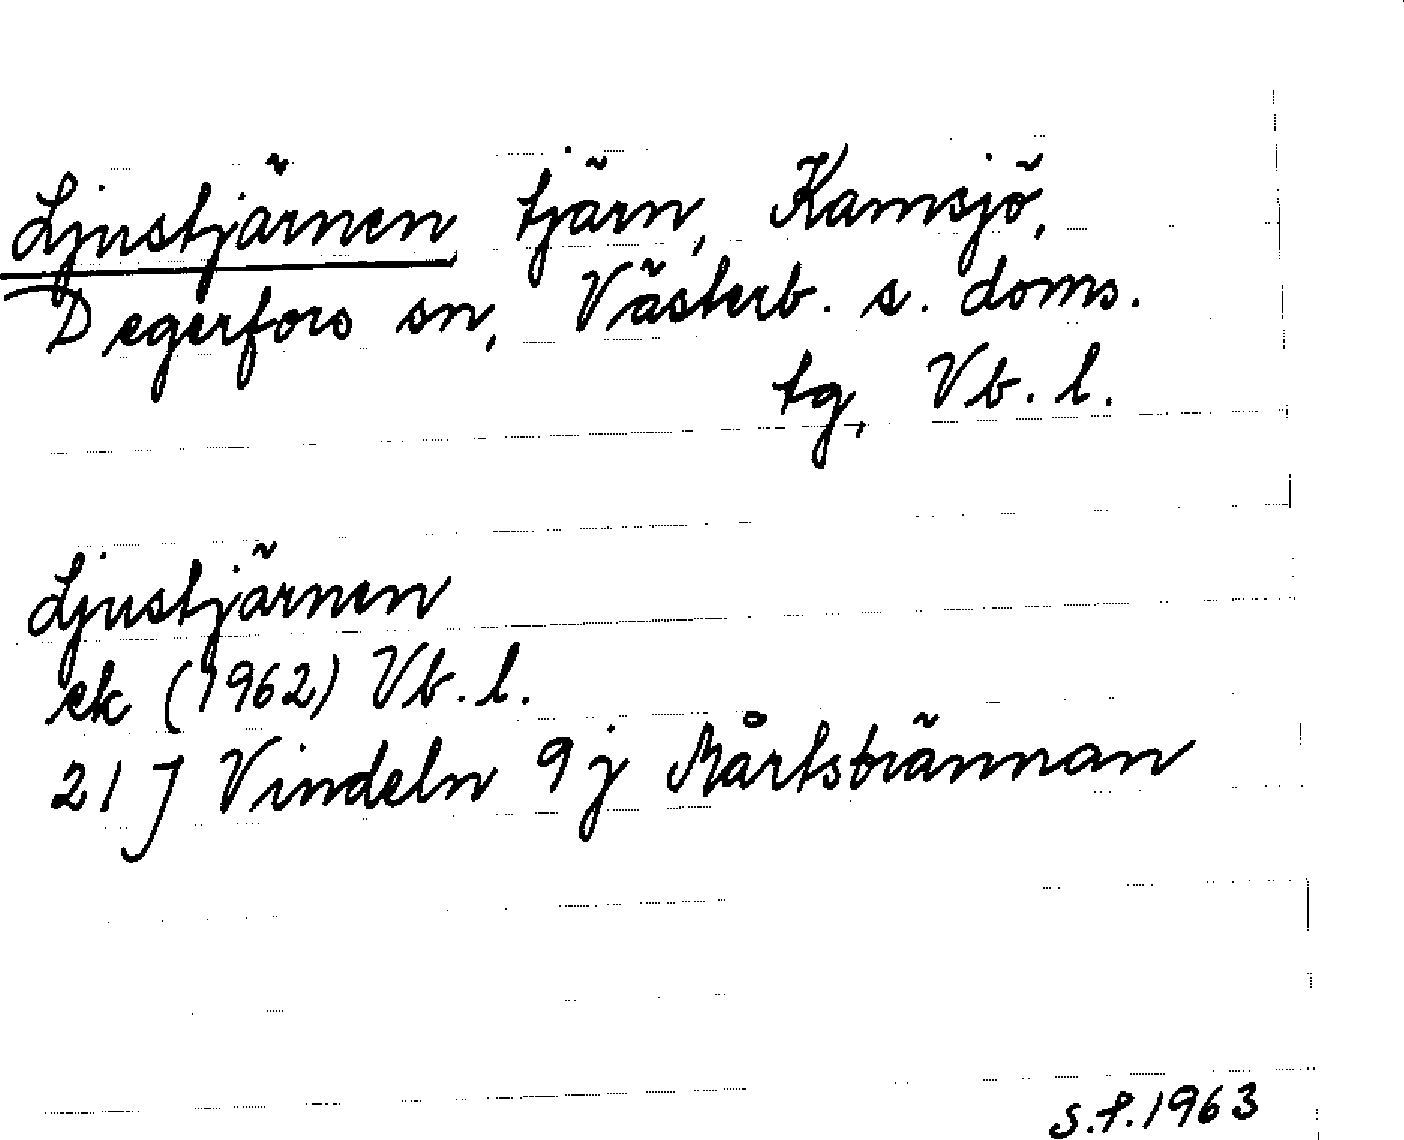 Ljustjärnen tjärn, Kamsjö,
Degerfors sn, Västerb. s. doms.
tg, Vb. l.
Ljustjärnen
ek (1962) Vb. l.
21 J Vindeln 9 j Mårtsbrännan
S.f. 1963